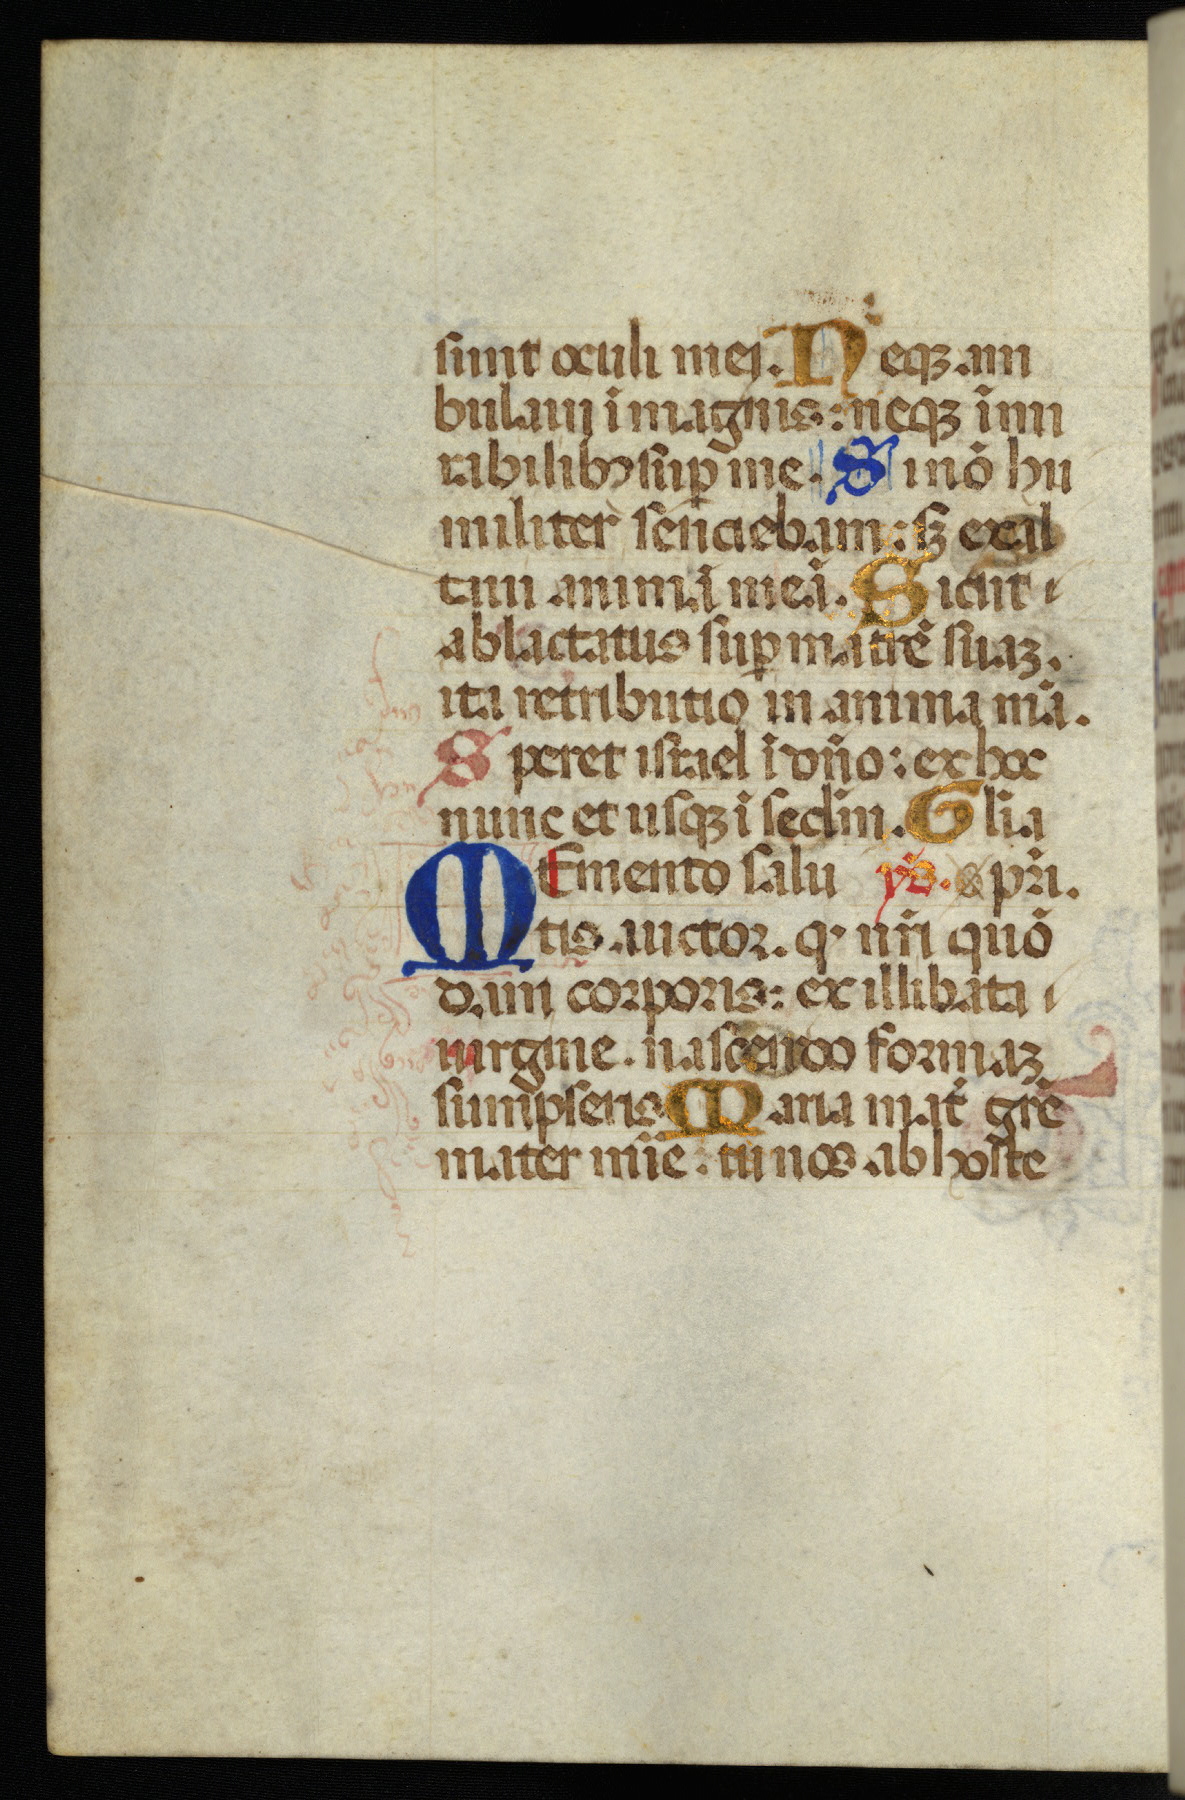 sunt oculi mei. Neqꝫ am
bulaui ī magnis: neqꝫ ī mi
rabilibꝫ suꝑ me. Si nō hu
militer senciebam: sꝫ exal
taui animā meā. Sicut
ablactatus suꝑ matrē suaꝫ.
ita retributio in anima mā.
Speret israel ī dn̄o: ex hoc
nunc et usqꝫ ī seclm̄. Glīa
MEmento salu ymꝰ. & pr̄i.
tis auctor. qꝰ nr̄i quō
dam corporis: ex illibata
uirgine. nascendo formaꝫ
sumpseris Maria mat̄ gr̄e
mater mīe: tu nos ab hoste